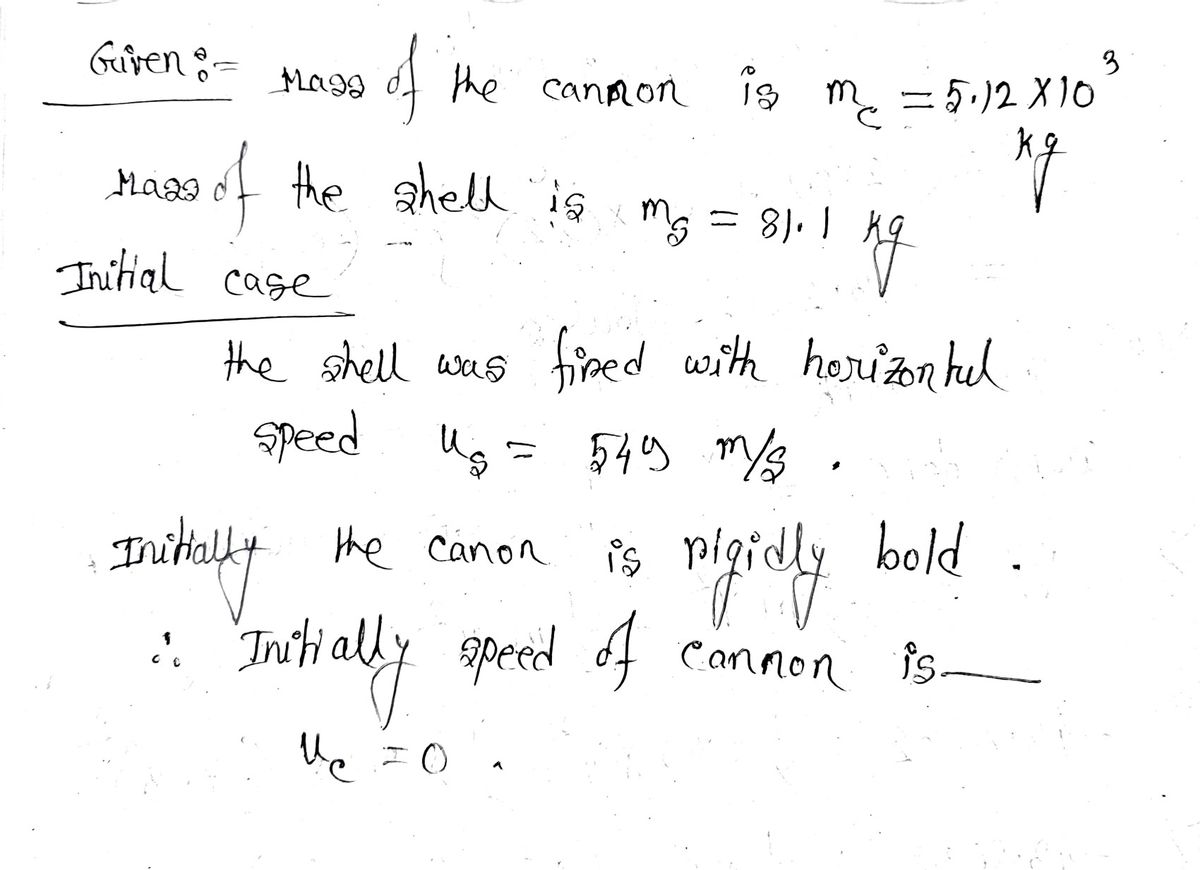 Given :- Mass of the cannon is m_c = 5.12 X 10^3
kg
Mass of the shell is m_s = 81.1 kg
Initial case
the shell was fired with horizontal
speed u_s = 549 m/s .
Initially the canon is rigidly bold .
∴ Initially speed of cannon is —
u_c = 0 .